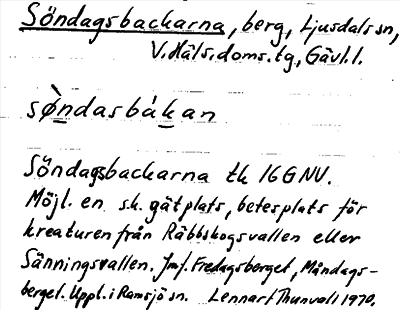 Söndagsbackarna, berg, Ljusdals sn,
V. Häls. doms. tg, Gävl. l.
sø̀ndasbákan
Söndagsbackarna tk 16G NV.
Möjl. en s.k. gätplats, betesplats för
kreaturen från Räbbskogsvallen eller
Sänningsvallen. Jmf. Fredagsberget, Måndags-
berget. Uppl. i Ramsjö sn. Lennart Thunvall 1970.